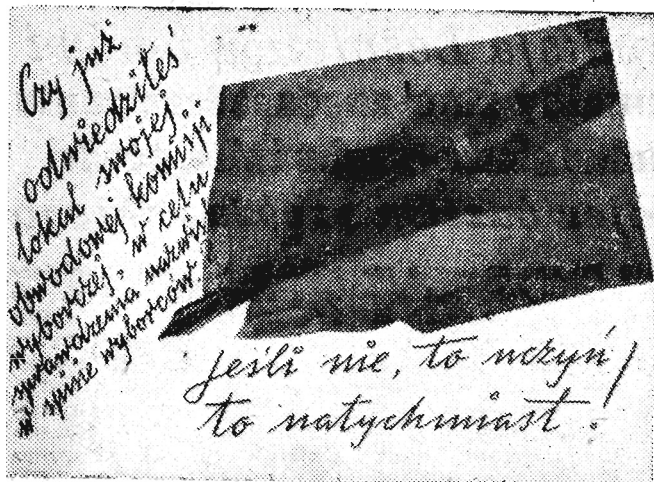 Czy już
odwiedziłeś
lokal swojej
obwodowej komisji
wyborczej, w celu
sprawdzenia nazwisk
w spisie wyborców
jeśli nie, to uczyń
to natychmiast!